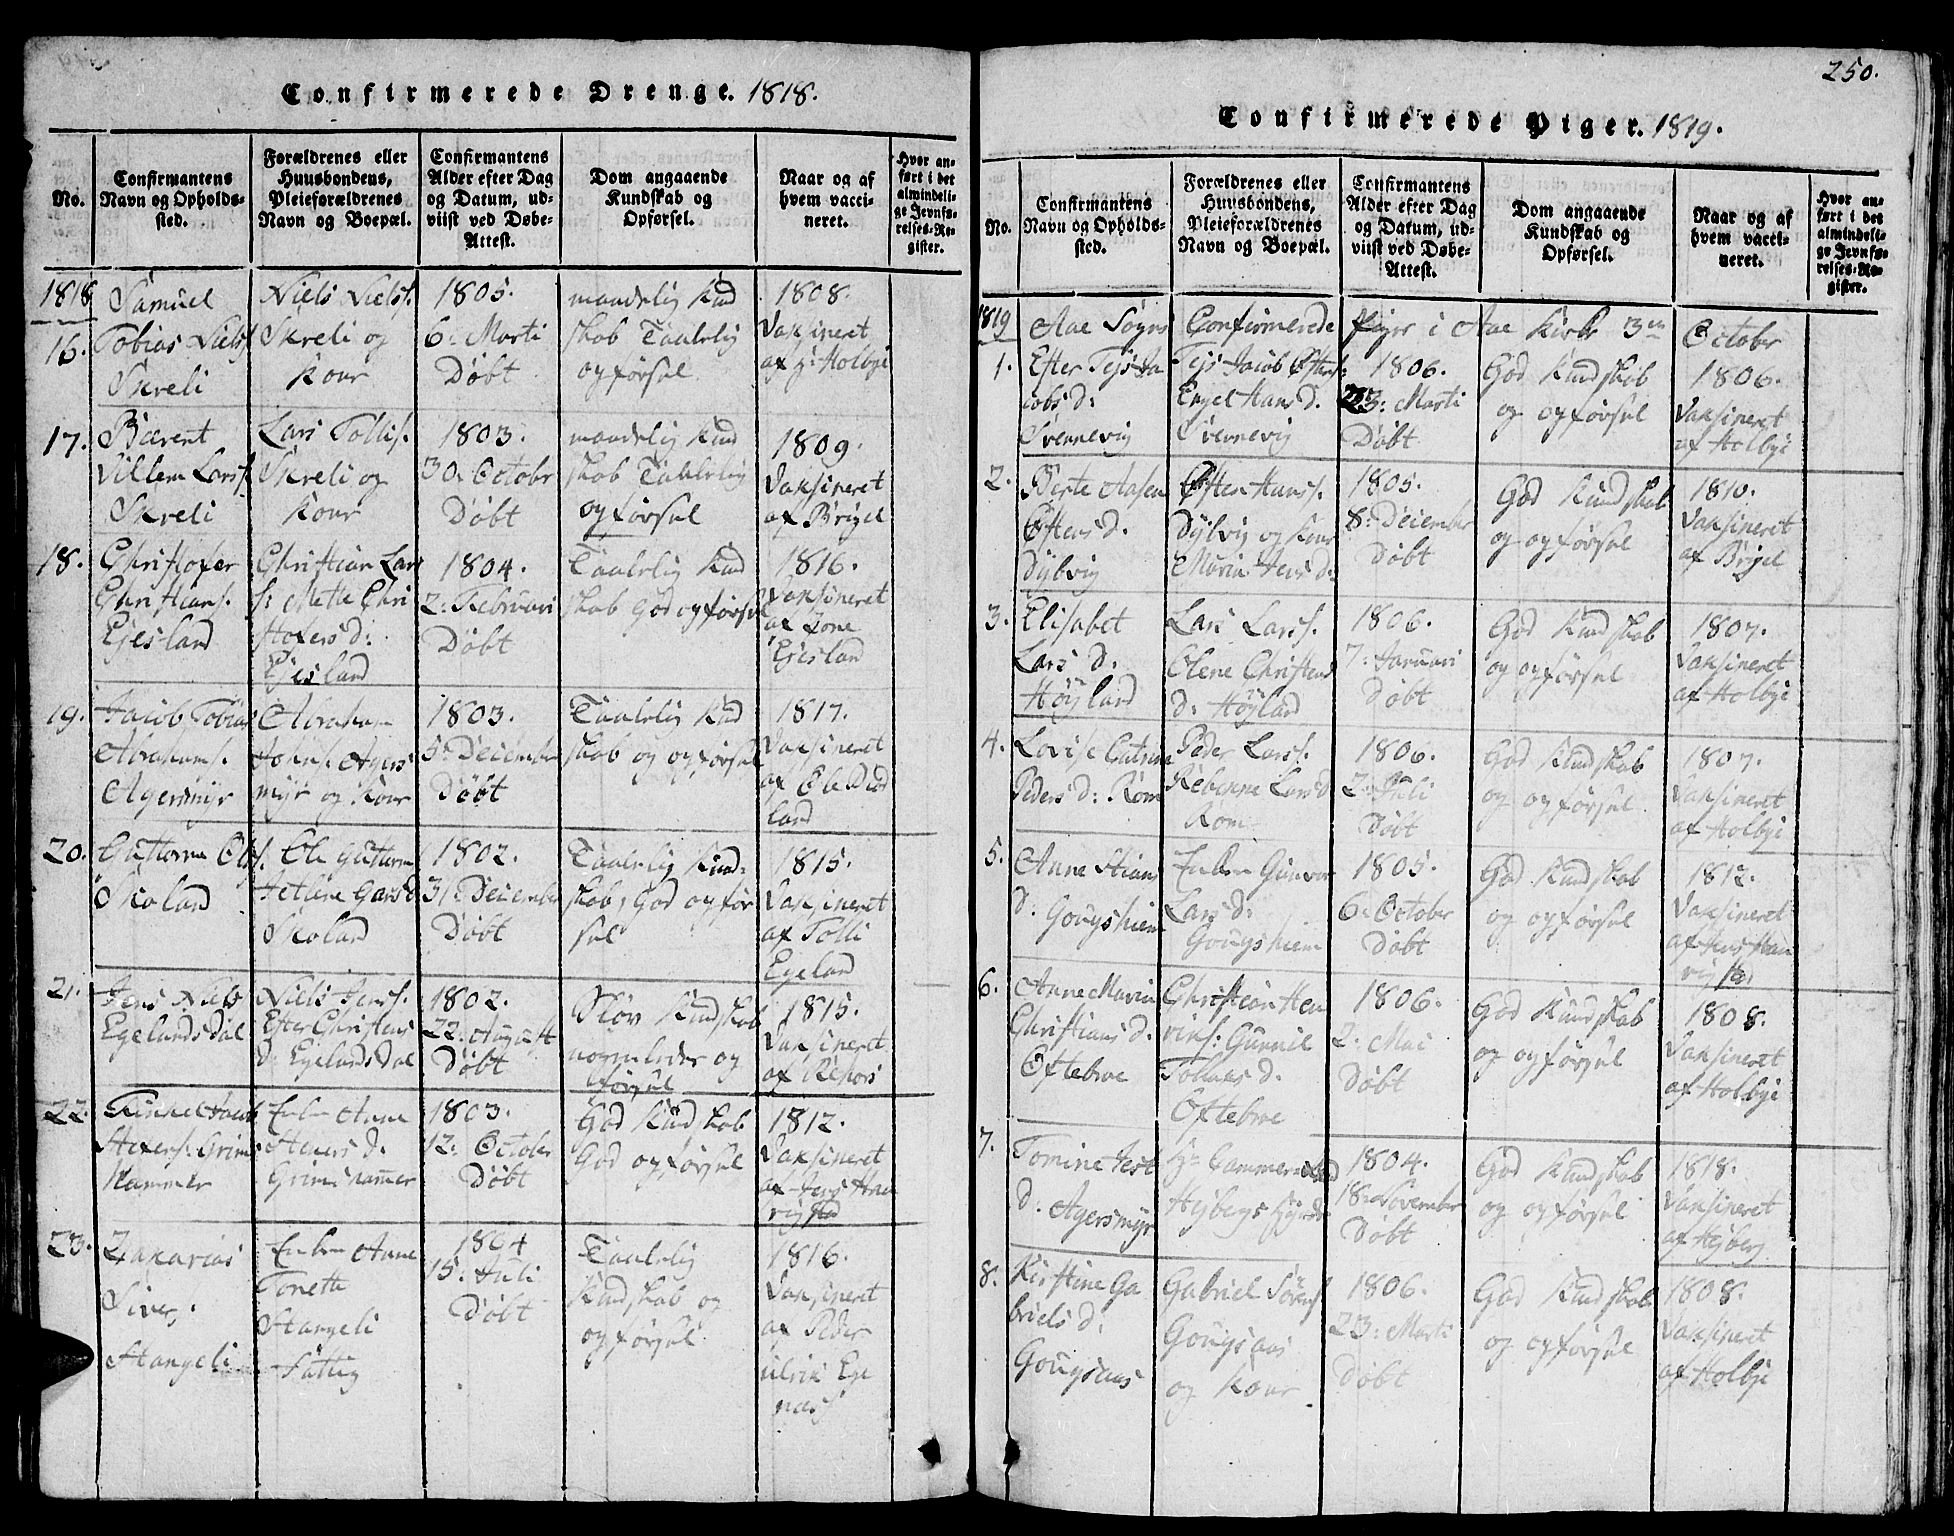 Confirmerede Drenge. 1818.
No.
Confirmantens
Navn og Opholds-
sted.
Forældrenes eller
Huusbondens,
Pleieforældrenes
Navn og Boepæl.
Confirmantens
Alder efter Dag
og Datum, ud-
viist ved Døbe-
Attest.
Dom angaaende
Kundskab og
Opførsel.
Naar og af
hvem vacci-
neret.
Hvor an-
ført i det
almindeli-
ge Jevnfø-
relses-Re-
gister.
1818
16.
Samuel
Tobias Niels
Skreli
Niels Nielss.
Skreli og
Kone
1805.
6: Marti
Døbt
maadelig Kund
skab Taalelig
opførsel
1808.
Vaksineret
af H: Holbye
17.
Bærent
Villem Larss.
Skreli
Lars Tollis.
Skreli og
Kone
1803.
30. October
Døbt
maadelig Kund
skab Taalelig
opførsel
1809.
Vaksineret
af Brigel
18.
Christofer
Christians.
Ejesland
Christian Lar
s: Mette Chri
stofers d:
Ejesland
1804.
2: Februari
Døbt
Taalelig Kund
skab God opførsel
1816.
Vaksineret
af Tone
Ejesland
19.
Jacob Tobias
Abrahams.
Agersmyr
Abraham
Johns. Agers
myr og Kone
1803.
5: December
Døbt
Taalelig Kund
skab og opførsel
1817.
Vaksineret
af Ole
land
20.
Guttorm Ols.
Skoland
Ole Guttorm
Skoland
1802.
31: December
Døbt
Taalelig Kund-
skab, God opfør
sel
1815.
Vaksineret
af Tolli
Egeland
21.
Jens Niels
Egelands Dal
Niels Jenss.
Efter Christens
d: Egelands Dal
1802.
22: August
Døbt
Sløv Kundskab
og
1815.
Vaksineret
af
22.
Jacob
Stefers. Grims
Hammer
Enken Anne
Steners d.
Grimshammer
1803.
12: October
Døbt
God Kundskab
God opførsel
1812.
Vaksineret
af Jens Haa
vigstad
23.
Zakarias
Sivers.
Stangeli
Enken Anne
Tonette
Stangeli
Fattig
1804
15: Juli
Døbt
Taalelig
Kundskab og
opførsel
1816.
Vaksineret
af Peder
Ulrik Ege
næss
250.
Confirmerede Piger. 1819.
No.
Confirmantens
Navn og Opholds-
sted.
Forældrenes eller
Huusbondens,
Pleieforældrenes
Navn og Boepæl.
Confirmantens
Alder efter Dag
og Datum, ud-
viist ved Døbe-
Attest.
Dom angaaende
Kundskab og
Opførsel.
Naar og af
hvem vacci-
neret.
Hvor an-
ført i det
almindeli-
ge Jevnfø-
relses-Re-
gister.
1819
Aae Sogns Confirmerede Piger i Aae Kirke 3die October
1.
Efter Tejs Ja
cobs d:
Svennevig
Tejs Jacob Ofters:
Engel Hans d.
Svennevig
1806.
23: Marti
Døbt
God Kundskab
og opførsel
1806.
Vaksineret
af Holbye
2.
Berte Aasen
Oftens d.
Dybvig
Often Hanss.
Dybvig og Kone
Maria Jens d:
1805.
8: December
Døbt
God Kundskab
og opførsel
1810.
Vaksineret
af Brigel
3.
Elisabet
Lars d.
Høyland
Lars Larss.
Olene Christens
d: Høyland
1806.
7: Januari
Døbt
God Kundskab
og opførsel
1807.
Vaksineret
af Holbye
4.
Lovise Catrine
Peders d: Rom
Peder Larss.
Lars d
Rom
1806.
2: Juli
Døbt
God Kundskab
og opførsel
1807.
Vaksineret
af Holbye
5.
Anne Stians
d: Gougshiem
Enken Gunvor
Lars d:
Gougshiem
1805.
6: October
Døbt
God Kundskab
og opførsel
1812.
Vaksineret
af Jens Haa
vigstad
6.
Anne Maria
Christians d:
Oftebroe
Christian Hen
riks: Gunnil
d.
Oftebroe
1806.
2: Mai
Døbt
God Kundskab
og opførsel
1808.
Vaksineret
af Holbye
7.
Tomine Jest
d: Agersmyr
1804.
18: November
Døbt
God Kundskab
og opførsel
1818.
Vaksineret
af Hejberg
8.
Kirstine Ga
briels d.
Gougsaas
Gabriel Sørens
Gougsaas
og Kone
1806.
23: Marti
Døbt
God Kundskab
og opførsel
1808.
Vaksineret
af Holbye